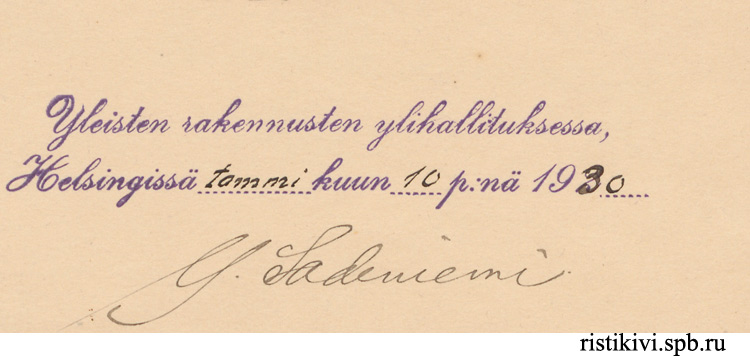 Yleisten rakennusten ylihallituksessa,
Helsingissä tammi kuun 10 p:nä 1930
Y. Sadeniemi
ristikivi.spb.ru